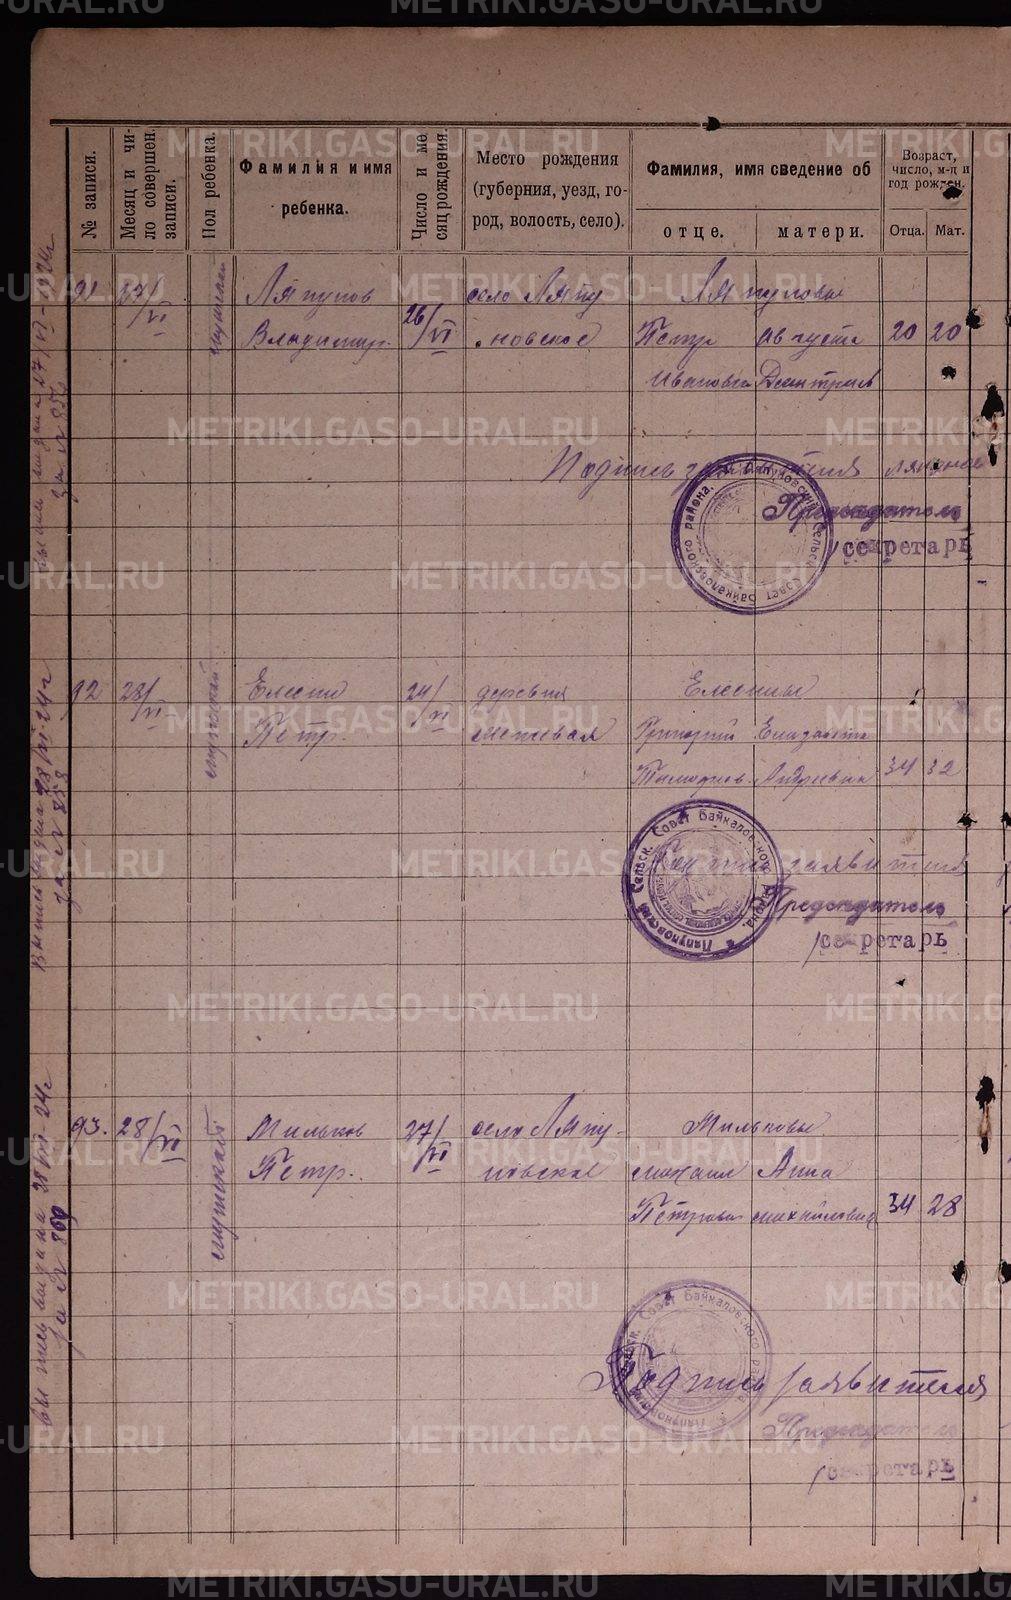 № записи.
Месяц и чи-
ло совершен.
записи.
Пол ребенка.
Фамилия и имя
ребенка.
Число и ме
сяц рождения.
Место рождения
(губерния, уезд, го-
род, волость, село).
Фамилия, имя сведение об
отце.
матери.
Возраст,
число, м-ц и
год рожден.
Отца.
Мат.
91 27/VI мужской
Ляпунов
Владимир.
26/VI
село Ляпу
новское
Ляпуновы
Петр
Августа
20 20
Иванович
Дмитриев
Подпись заявителя
Председатель
/секретарь
Ляпуновский Сельск. Совет Байкаловского района.
92 28/VI мужской
Елесин
Петр.
24/VI
деревня
Елесины
Григорий
Елизавета
Тимофеев.
Андреевна
34 32
заявителя
Председатель
/секретарь
Ляпуновский Сельск. Совет Байкаловского района.
93. 28/VI мужской
Мильков
Петр.
27/VI
село Ляпу-
новское
Мильковы
михаил
Анна
Петрович
михайловна
34 28
Подпись заявителя
Председатель
/секретарь
Сельск. Совет Байкаловского района
выпись выдана 27/VI-1924г
за №
Выпись выдана 28/VI-24г
за №
выпись выдана 28/VI-24г
за №
METRIKI.GASO-URAL.RU